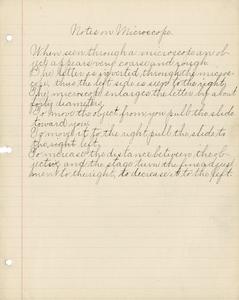 Notes on Microscope.
When seen through a microscope an ob-
ject appears very coarse and rough.
The letter is inverted through the micros-
cope, thus the left side is seen to the right.
The microscope enlarges the letter by about
forty diameters.
To move the object from you pull the slide
toward you.
To move it to the right pull the slide to
the right left.
To increase the distance between the ob-
jective and the stage turn the fine adjust
ment to the right, to decrease it to the left.